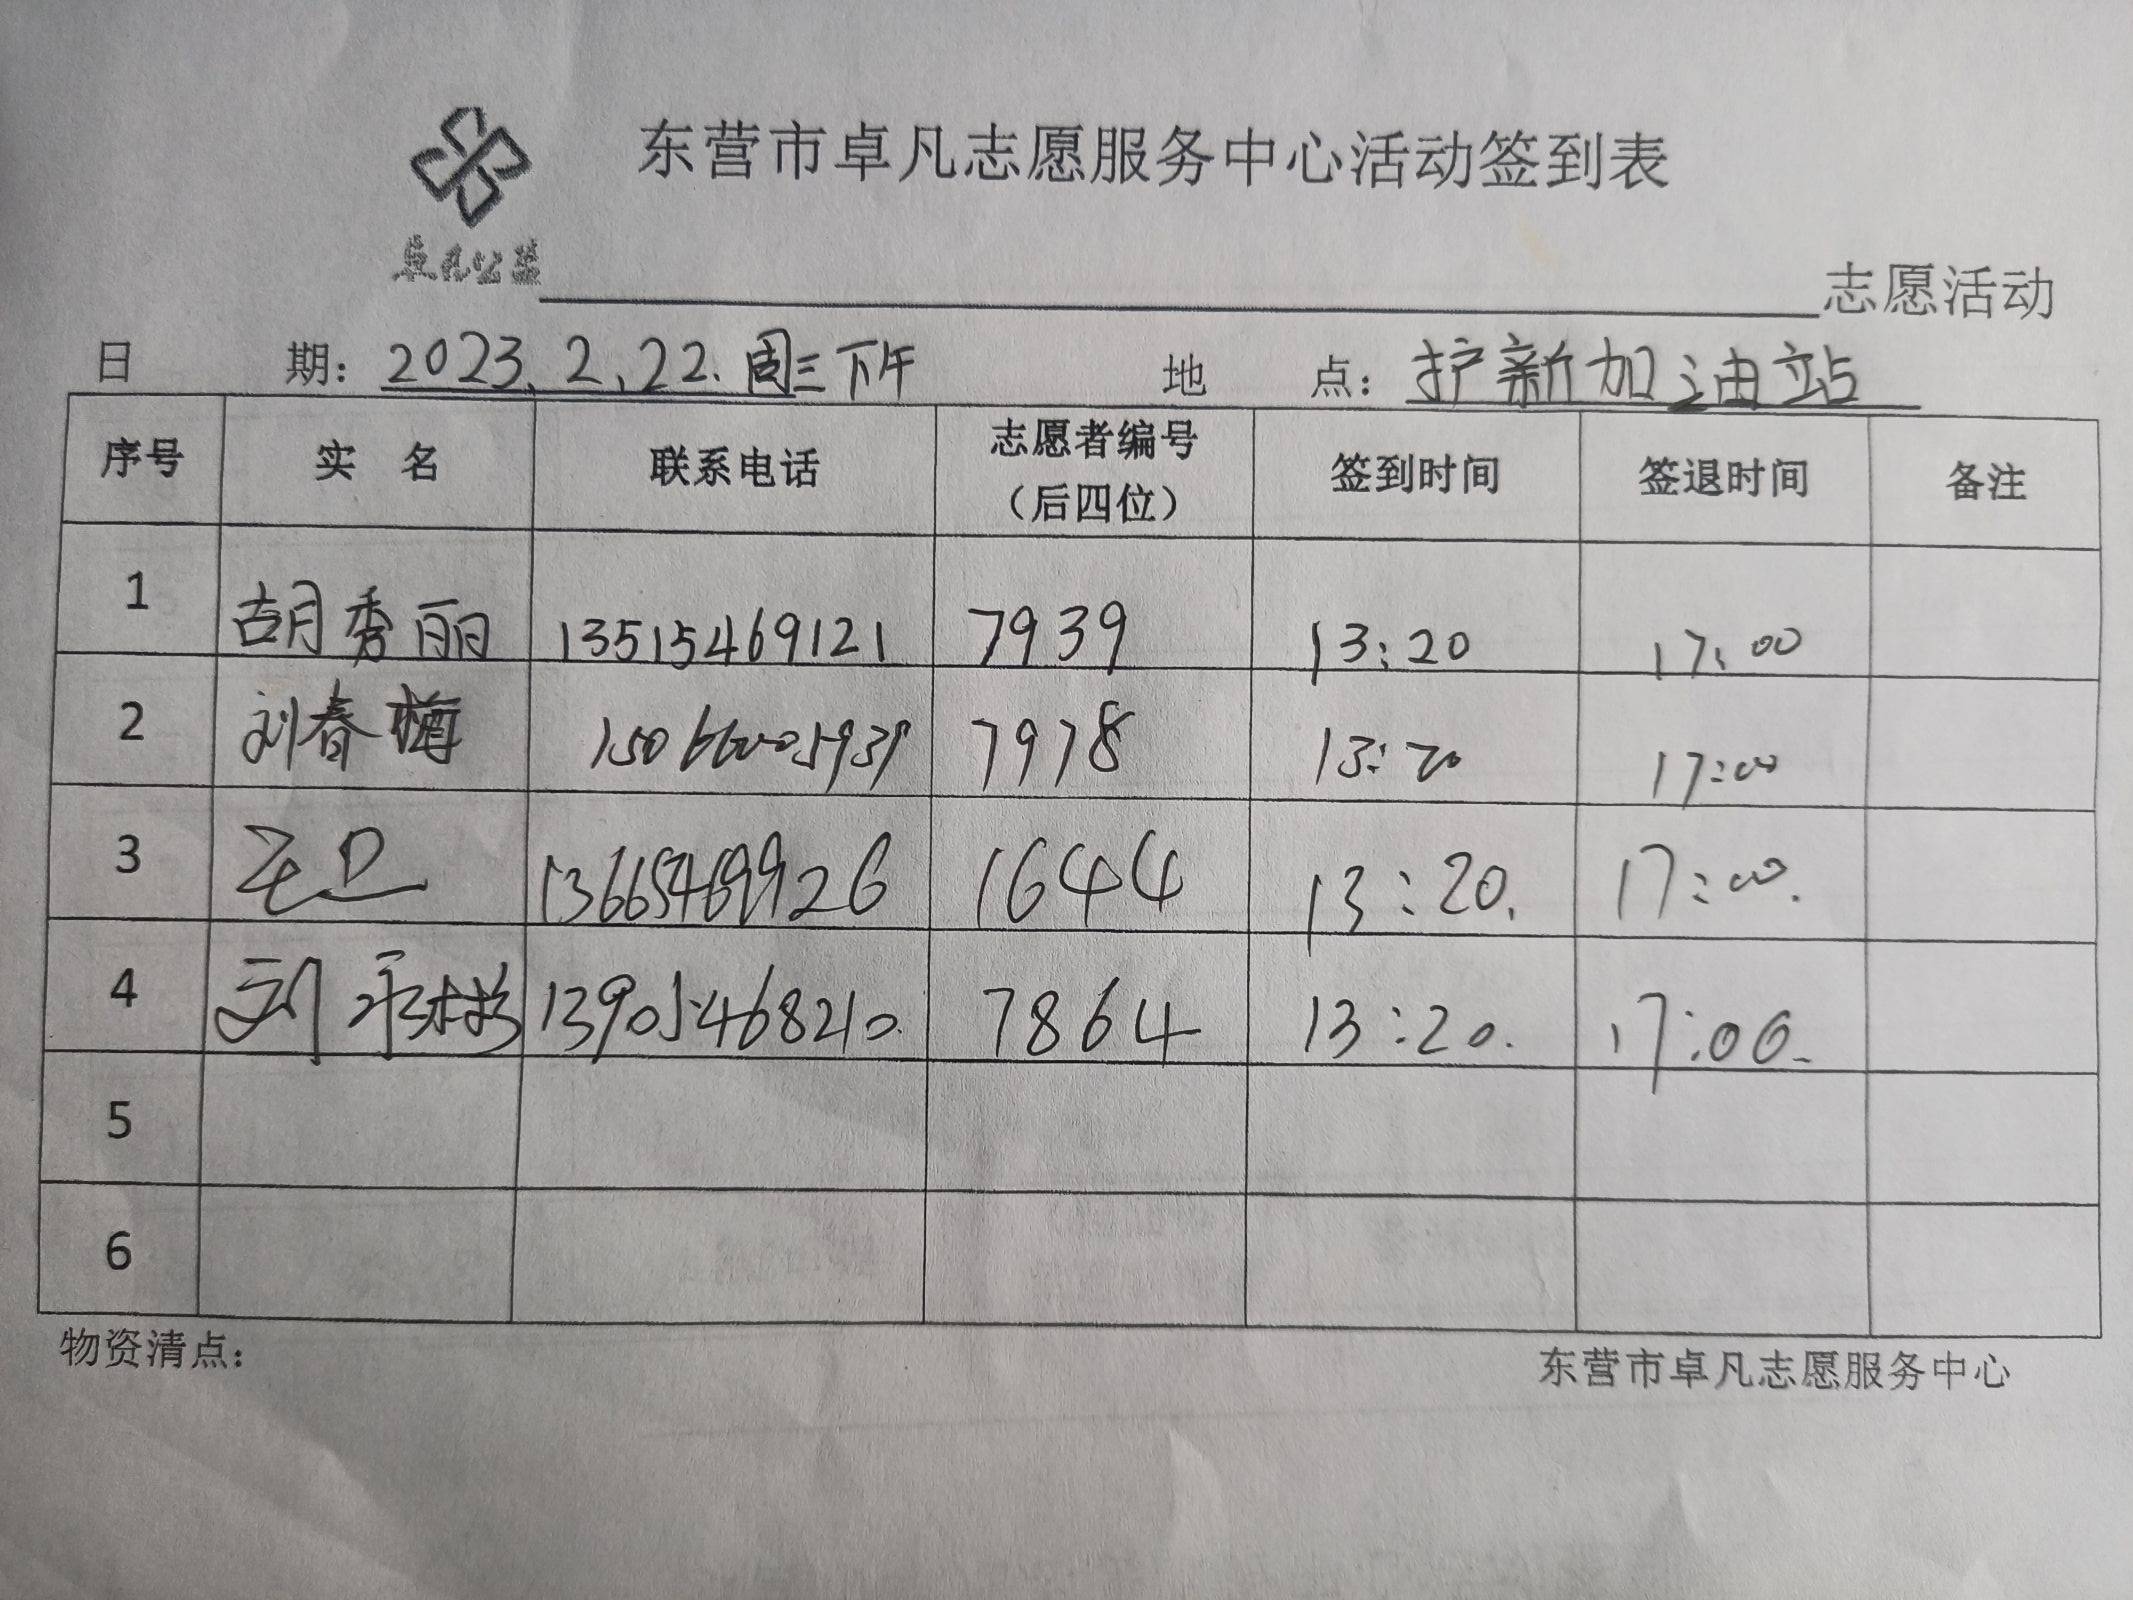 东营市卓凡志愿服务中心活动签到表
卓凡公益
志愿活动
日 期: 2023.2.22.周三下午 地 点: 护新加油站
序号 实 名 联系电话 志愿者编号（后四位） 签到时间 签退时间 备注
1 胡秀丽 13515469121 7939 13:20 17:00
2 刘春梅 7978 13:20 17:00
3 13665469926 1644 13:20. 17:00.
4 刘 13905468210. 7864 13:20. 17:00.
5
6
物资清点:
东营市卓凡志愿服务中心